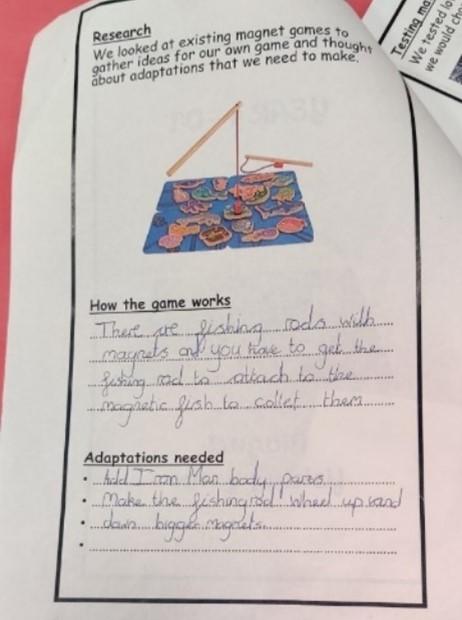 Research
We looked at existing magnet games to
gather ideas for our own game and thought
about adaptations that we need to make.
Testing ma
We tested lo
we would cho
How the game works
There are fishing rods with
magnets and you have to get the
fishing rod to attach to the
magnetic fish to collet them
Adaptations needed
• Add Iron Man body parts
• Make the fishingrod wheel up and
• down bigger magnets.
•